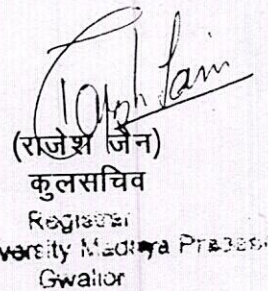 (राजेश जैन)
कुलसचिव
Registrar
versity Madhya Pradesh
Gwalior